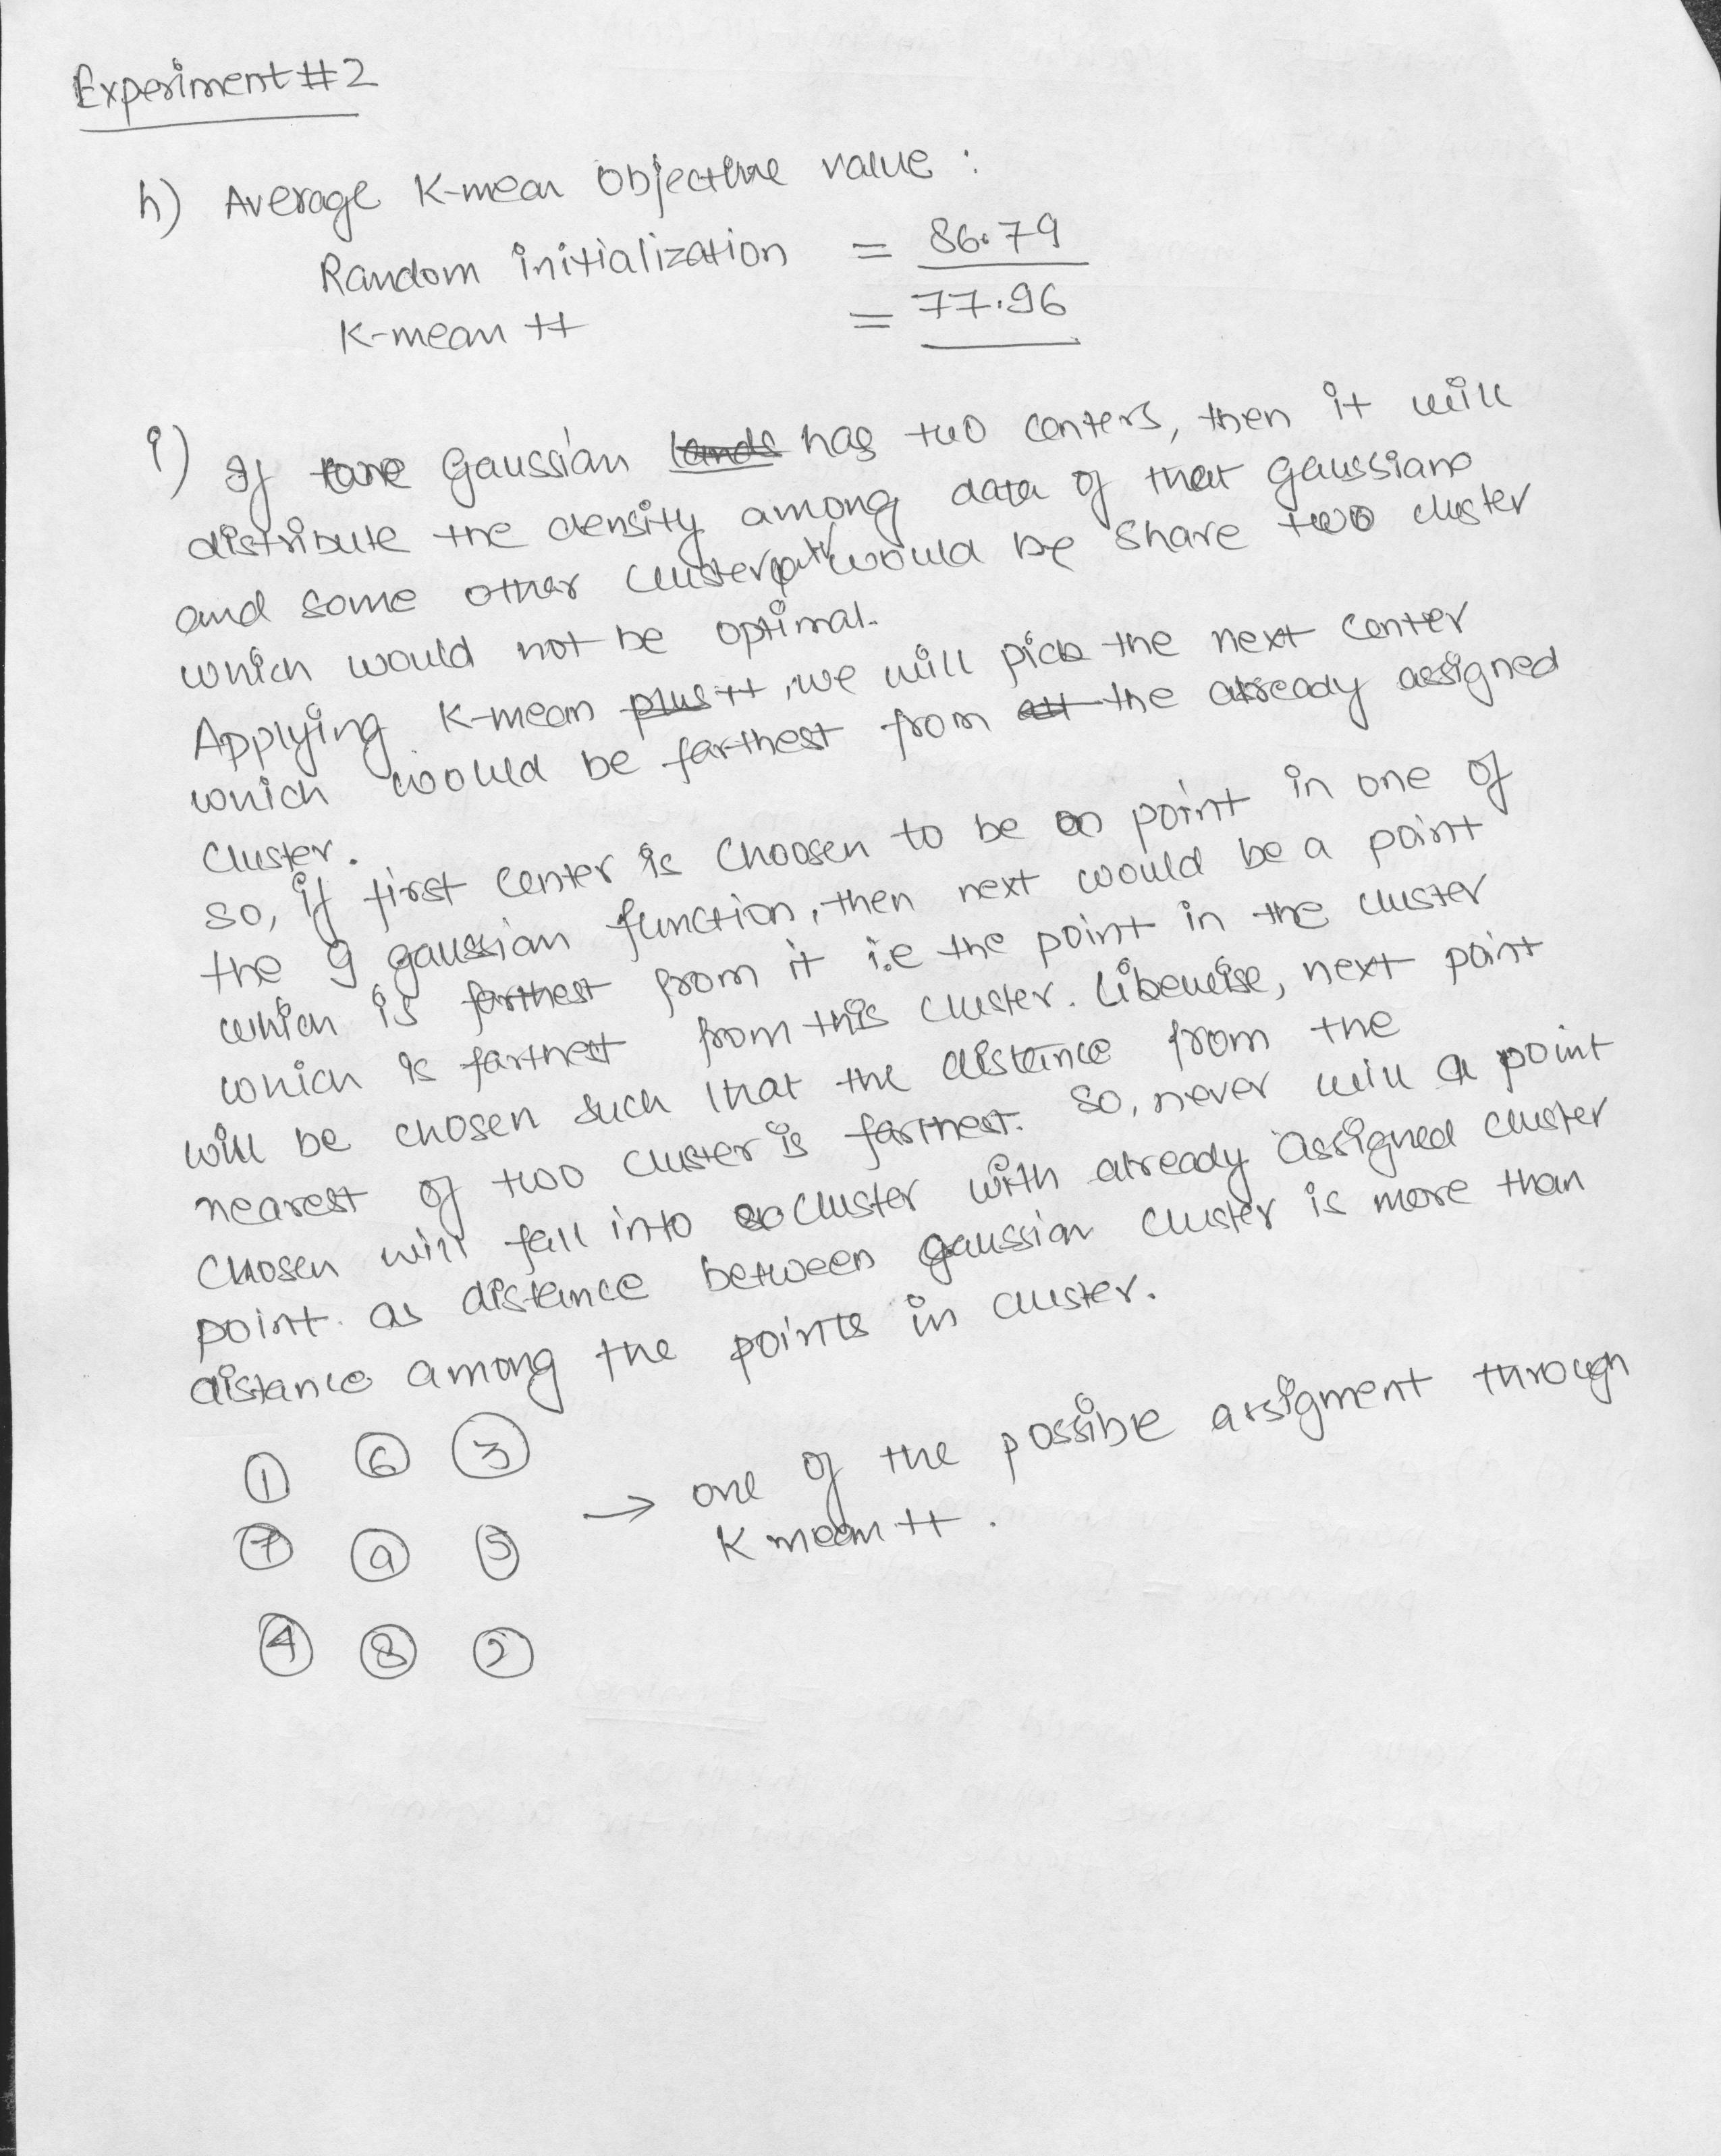 Experiment #2
h) Average K-mean Objective value :
Random initialization = 86.79
K-mean ++ = 77.96
i) If one Gaussian lands has two centers, then it will
distribute the density among data of that gaussian
and some other cluster pt would be share two cluster
which would not be optimal.
Applying K-mean plus ++, we will pick the next center
which would be farthest from all the already assigned
cluster.
so, if first center is choosen to be a point in one of
the 9 gaussian function, then next would be a point
which is farthest from it i.e the point in the cluster
which is farthest from this cluster. Likewise, next point
will be chosen such that the distance from the
nearest of two cluster is farthest. So, never will a point
chosen will fall into cluster with already assigned cluster
point. as distance between gaussian cluster is more than
distance among the points in cluster.
1 6 3
7 9 5 → one of the possible assigment through
K mean ++ .
4 8 2